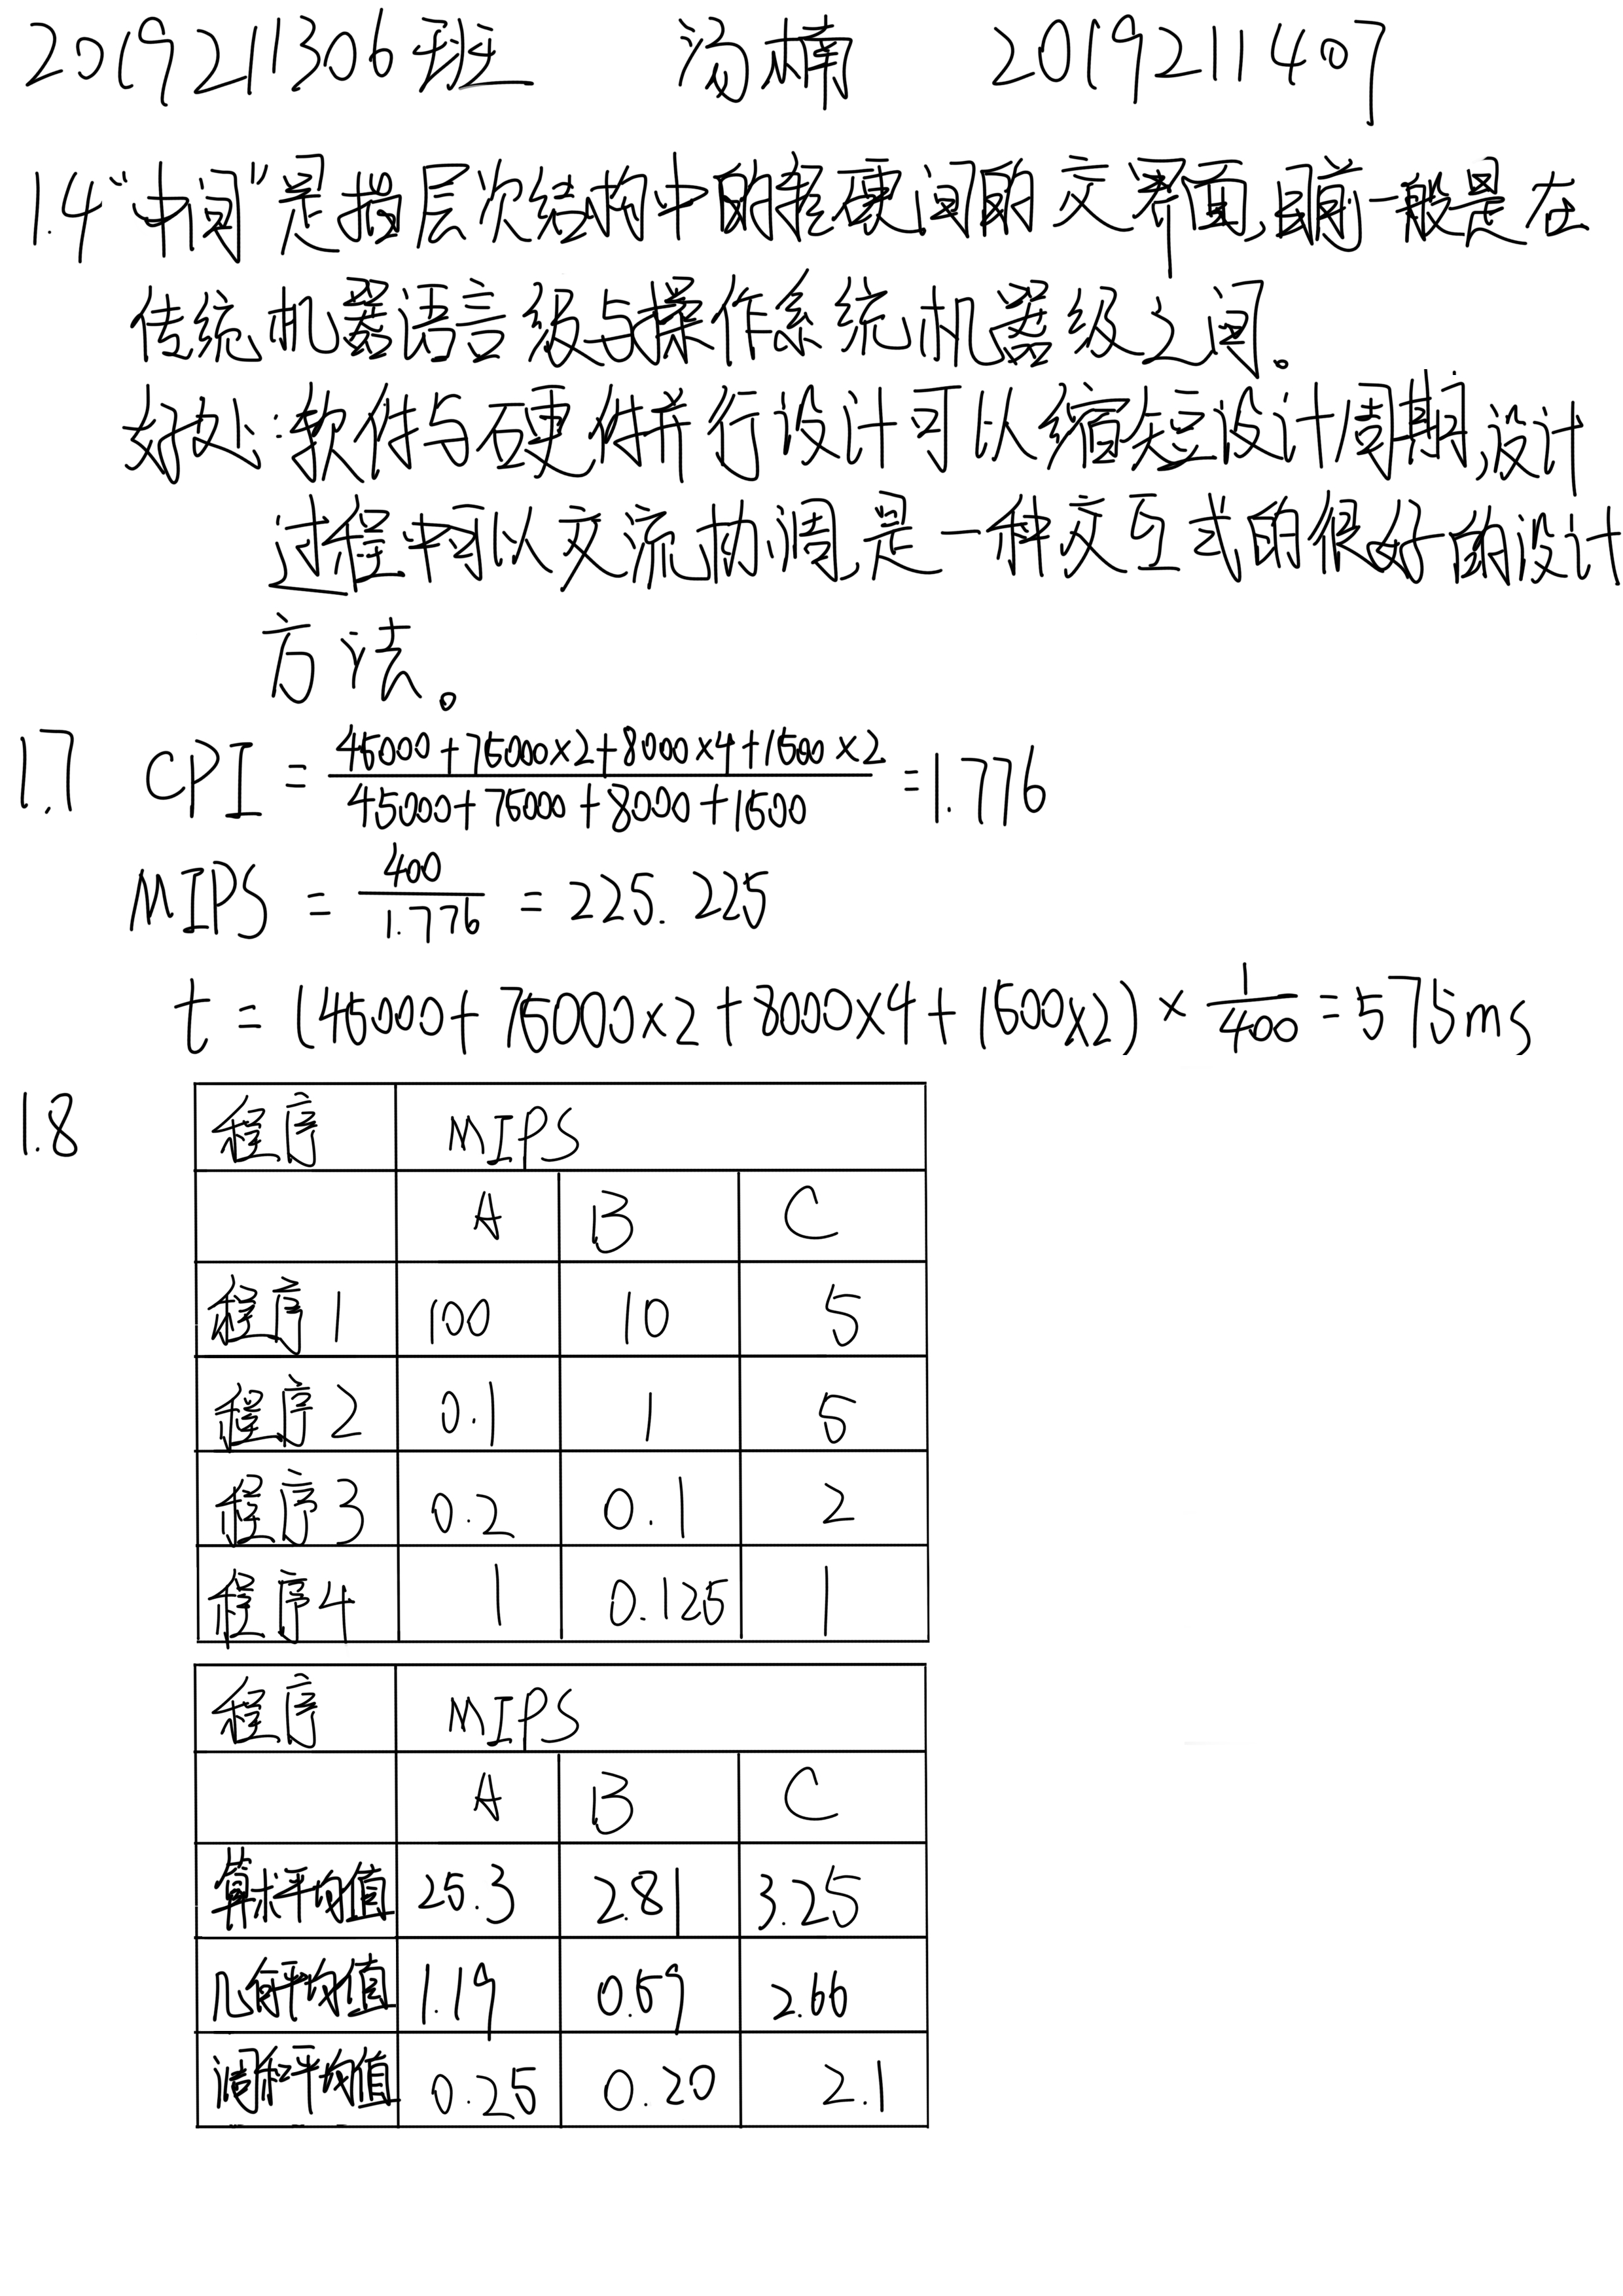 2019211306班 汤楠 2019211407
1.4 “中间”是指层次结构中的软硬间的交界面,目前一般是在
传统机器语言级与操作系统机器级之间。
好处:软件与硬件并行设计可以缩短设计周期,设计
过程中可以交流协调,是一种交互式的很好的设计
方法。
1.7 CPI = (45000+75000×2+8000×4+1500×2)/(45000+75000+8000+1500) = 1.776
MIPS = 400/1.776 = 225.225
t = (45000+75000×2+8000×4+1500×2) × 1/400 = 575ms
1.8 程序 MIPS
A B C
程序1 100 10 5
程序2 0.1 1 5
程序3 0.2 0.1 2
程序4 1 0.125 1
程序 MIPS
A B C
算术平均值 25.3 2.81 3.25
几何平均值 1.19 0.59 2.66
调和平均值 0.25 0.20 2.1